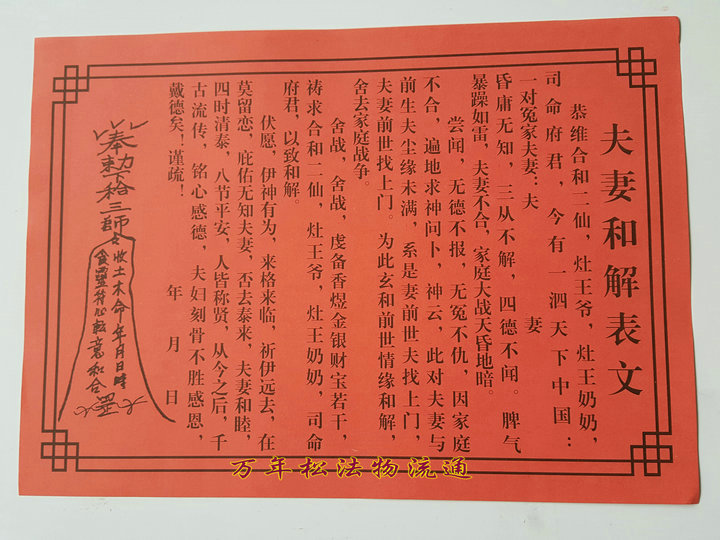 夫妻和解表文
恭维合和二仙，灶王爷，灶王奶奶，
司命府君，今有一泗天下中国：
一对冤家夫妻：夫　　　妻
昏庸无知，三从不解，四德不闻。脾气
暴躁如雷，夫妻不合，家庭大战天昏地暗。
尝闻，无德不报，无冤不仇，因家庭
不合，遍地求神问卜，神云，此对夫妻与
前生夫尘缘未满，系是妻前世夫找上门，
夫妻前世找上门。为此玄和前世情缘和解，
舍去家庭战争。
舍战，舍战，虔备香煜金银财宝若干，
祷求合和二仙，灶王爷，灶王奶奶，司命
府君，以致和解。
伏愿，伊神有为，来格来临，祈伊远去，在
莫留恋，庇佑无知夫妻，否去泰来，夫妻和睦，
四时清泰，八节平安，人皆称贤，从今之后，千
古流传，铭心感德，夫妇刻骨不胜感恩，
戴德矣：谨疏！
年　月　日
奉勅下
三師
收土木命年月日時
食靈符心転意和合
万年松法物流通